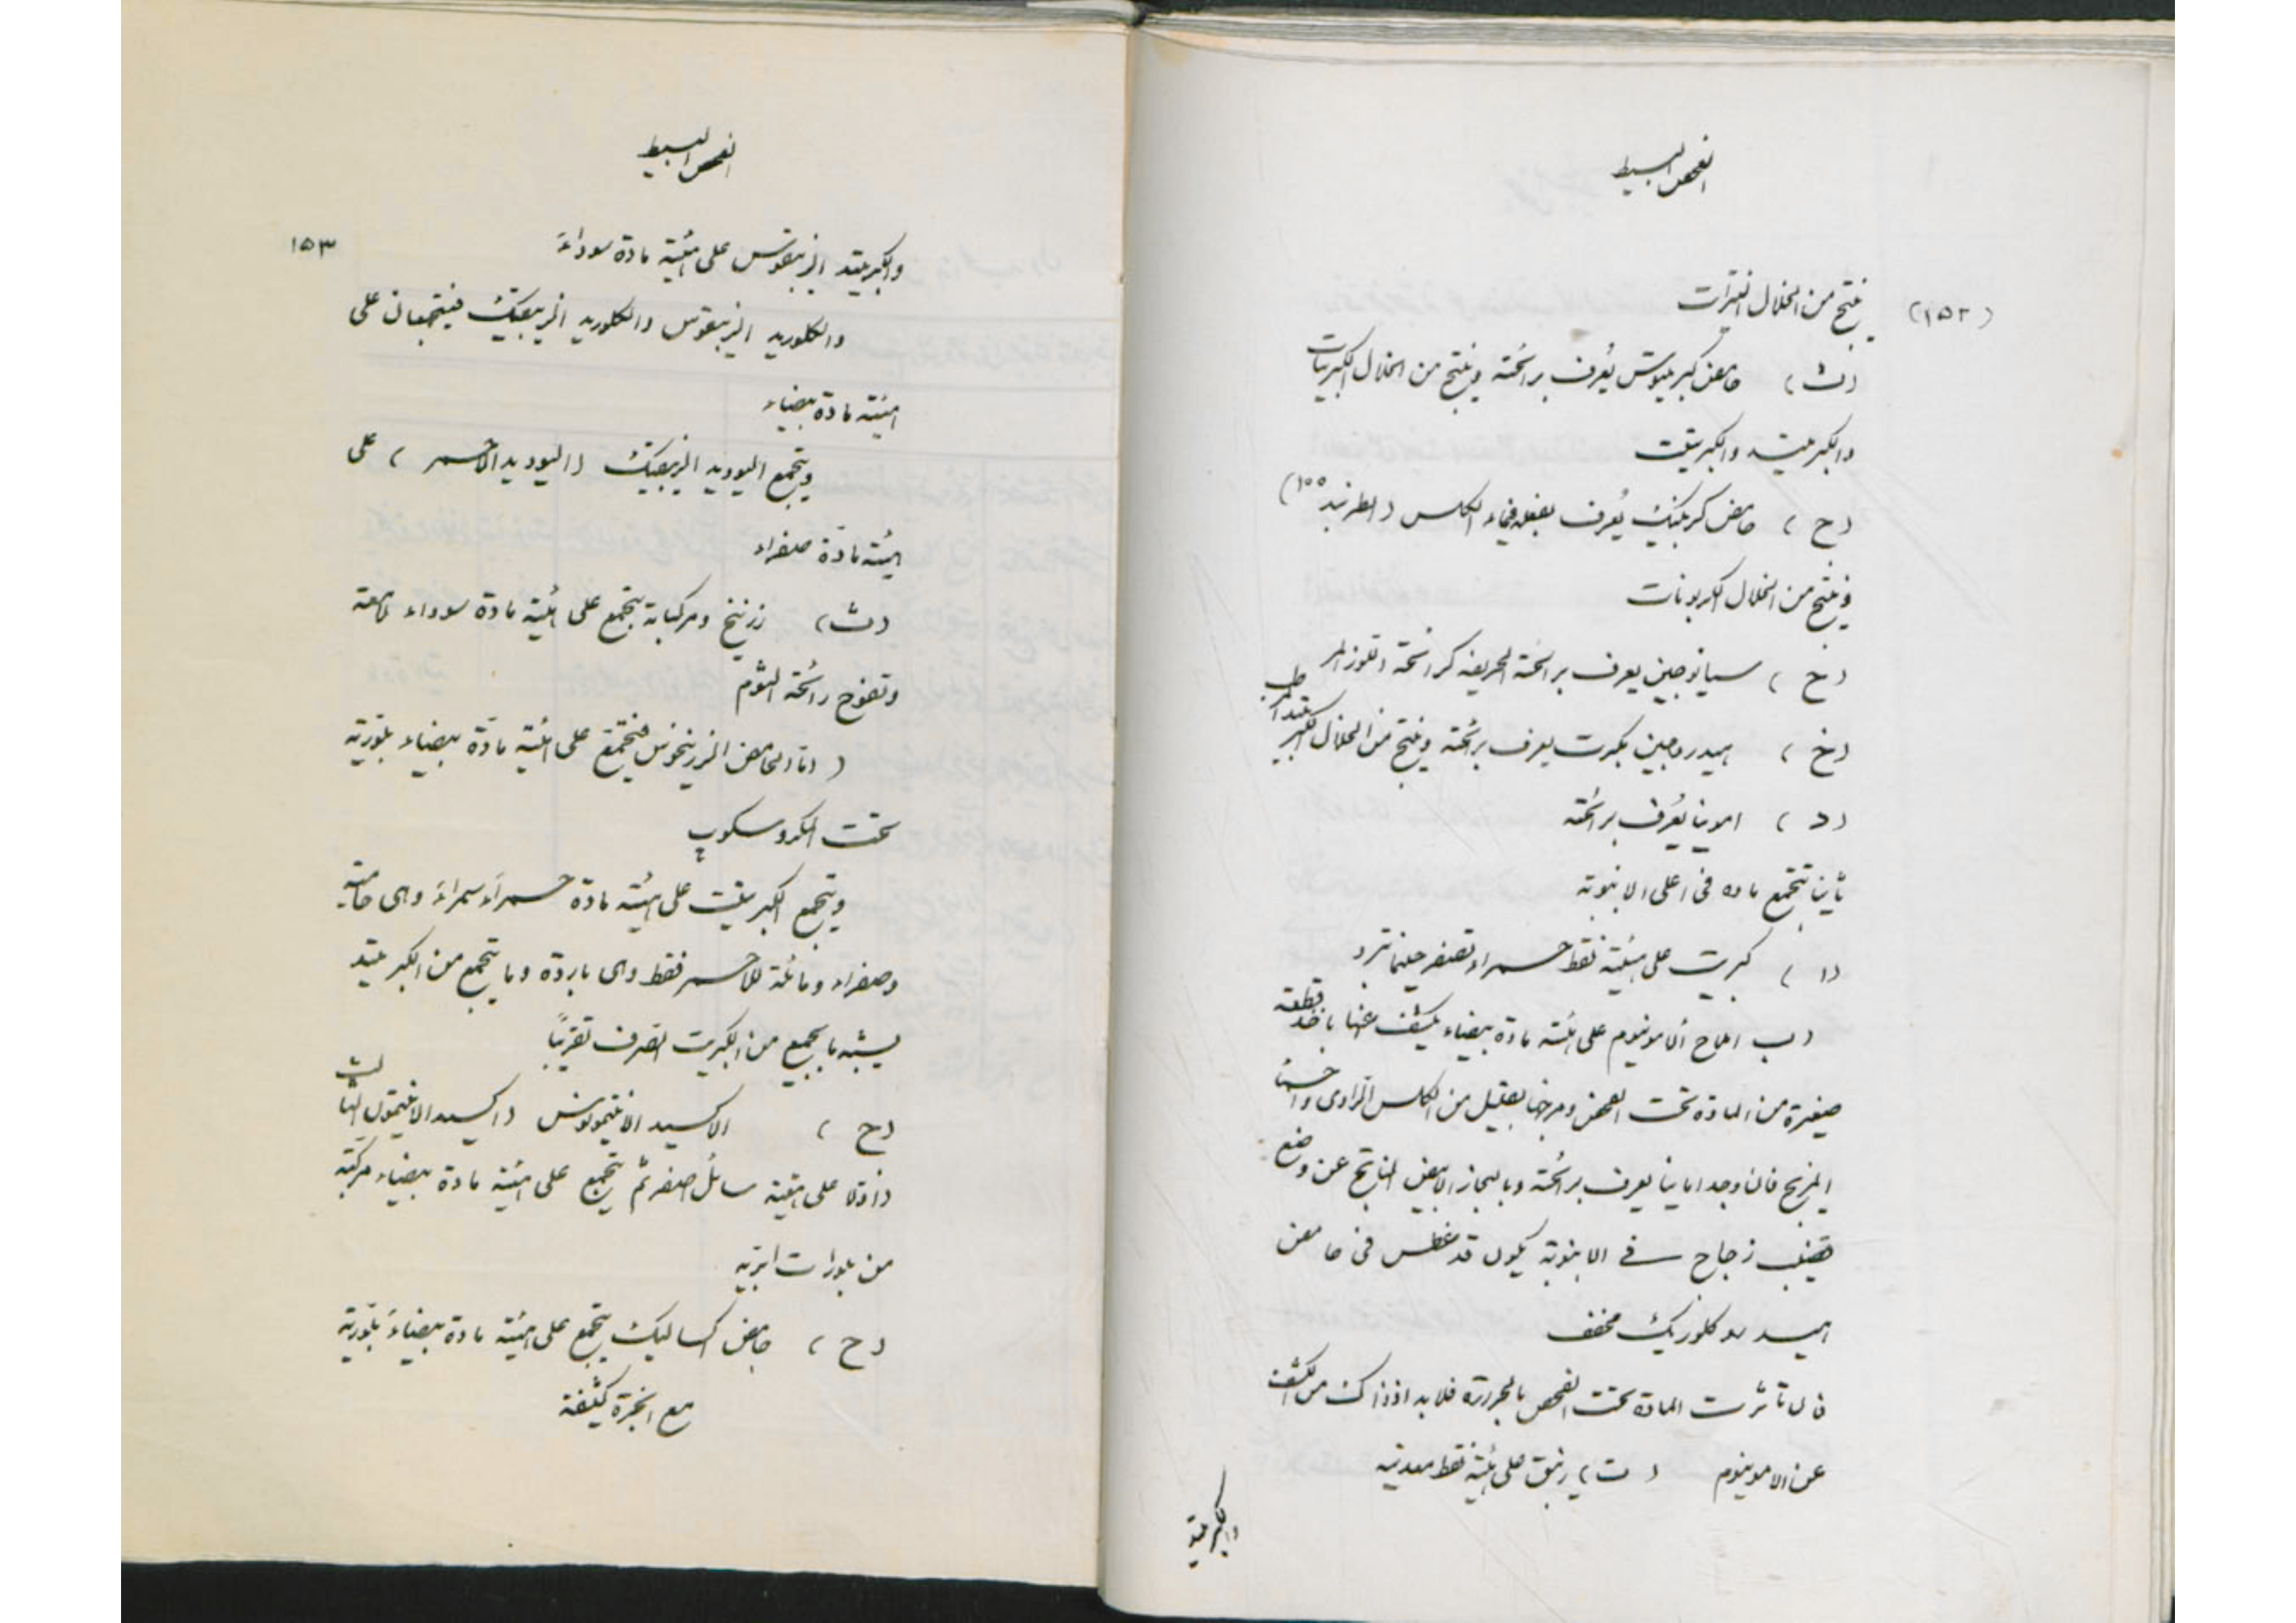 الفحص البسيط
(١٥٢) ينتج من انحلال النترات
(ث) حامض كبريتوش يُعرف برائحته وينتج من انحلال الكبريتات
والكبريتيد والكبريتيت
(ج) حامض كربنيك يُعرف بفعله فى ماء الكلس (اطر بند ١٥٥)
وينتج من انحلال الكربونات
(ح) سيانوجين يعرف برائحته الحريفة كرائحة اللوز المر
(خ) هيدروجين مكبرت يعرف برائحته وينتج من انحلال الكبريتيد الرطب
(د) امونيا يُعرف برائحته
ثانيا تتجمع ماده فى اعلى الانبوبة
(ا) كبريت على هيئة نقط حمراء تصفر حينما تبرد
(ب املاح الامونيوم على هيئة مادة بيضاء يكشف عنها باخذ قطعة
صغيرة من المادة تحت الفحص ومزجها بقليل من الكلس الراوى واحسا
المزيج فان وجد امونيا يعرف برائحته وبالبخار الابيض الناتج عن وضع
قضيب زجاج فى الانبوبة يكون قد غطس فى حامض
هيدروكلوريك مخفف
فان تأثرت المادة تحت الفحص بالحرارة فلا بد اذ ذاك من الكشف
عن الامونيوم (ت) زيبق على هيئة نقط معدنية
والكبريتيد
الفحص البسيط
١٥٣
والكبريتيد الزيبقوس على هيئة مادة سوداء
والكلوريد الزيبقوس والكلوريد الزيبقيك فيتجمعان على
هيئة مادة بيضاء
ويتجمع اليوديد الزيبقيك (اليوديد الاحمر) على
هيئة مادة صفراء
(ث) زرنيخ ومركباته يتجمع على هيئة مادة سوداء لامعة
وتفوح رائحة الثوم
(اما الحامض الزرنيخوس فيتجمع على هيئة مادة بيضاء بلورية
تحت المكروسكوب
ويتجمع الكبريتيت على هيئة مادة حمراء سمراء وهى حامية
وصفراء ومائلة للاحمر فقط وهى باردة وما يتجمع من الكبريتيد
يشبه ما يجمع من الكبريت الصرف تقريبًا
(ج) الاكسيد الانتيمونوس (اكسيد الانتيمون الثالث
ذا اولا على هيئة سائل اصفر ثم يتجمع على هيئة مادة بيضاء مركبة
من بلورات ابرية
(ح) حامض اكساليك يتجمع على هيئة مادة بيضاء بلورية
مع ابخرة كثيفة